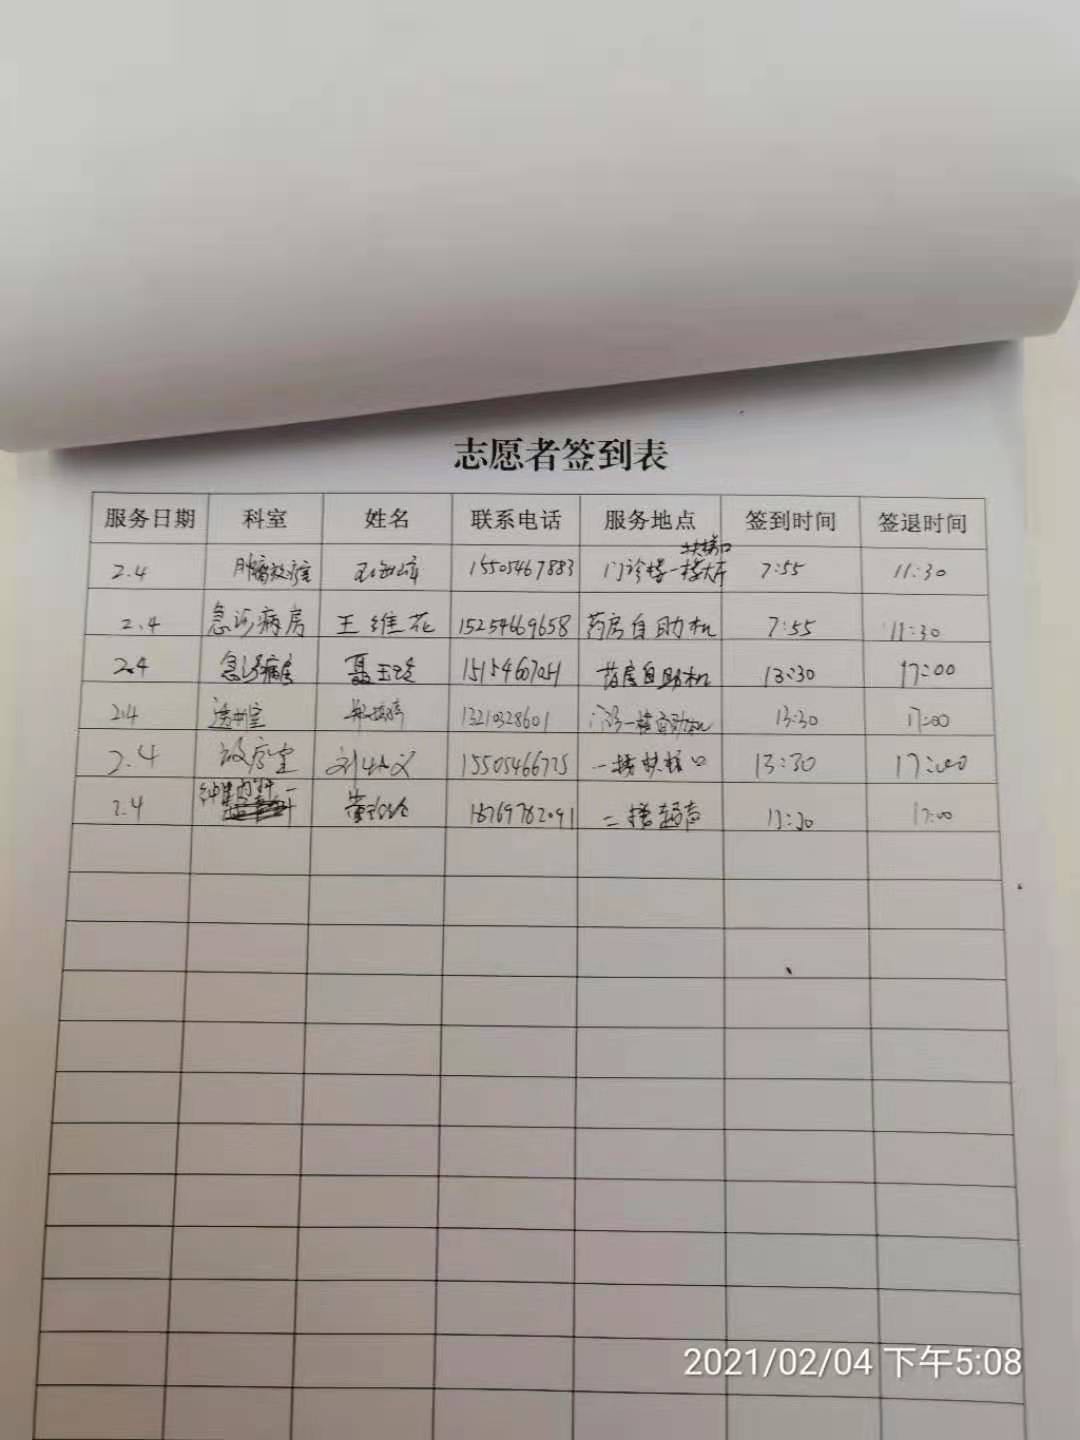 志愿者签到表
服务日期 科室 姓名 联系电话 服务地点 签到时间 签退时间
扶梯口
2.4 肿瘤放疗室 15505467883 门诊楼一楼大厅 7:55 11:30
2.4 急诊病房 王维花 15254669658 药房自助机 7:55 11:30
2.4 急诊病房 药房自助机 13:30 17:00
2.4 透析室 13210328601 门诊一楼自助机 13:30 17:00
2.4 放疗室 15505466725 一楼扶梯口 13:30 17:00
内科一
2.4 18769782091 二楼超声 13:30 17:00
2021/02/04 下午5:08